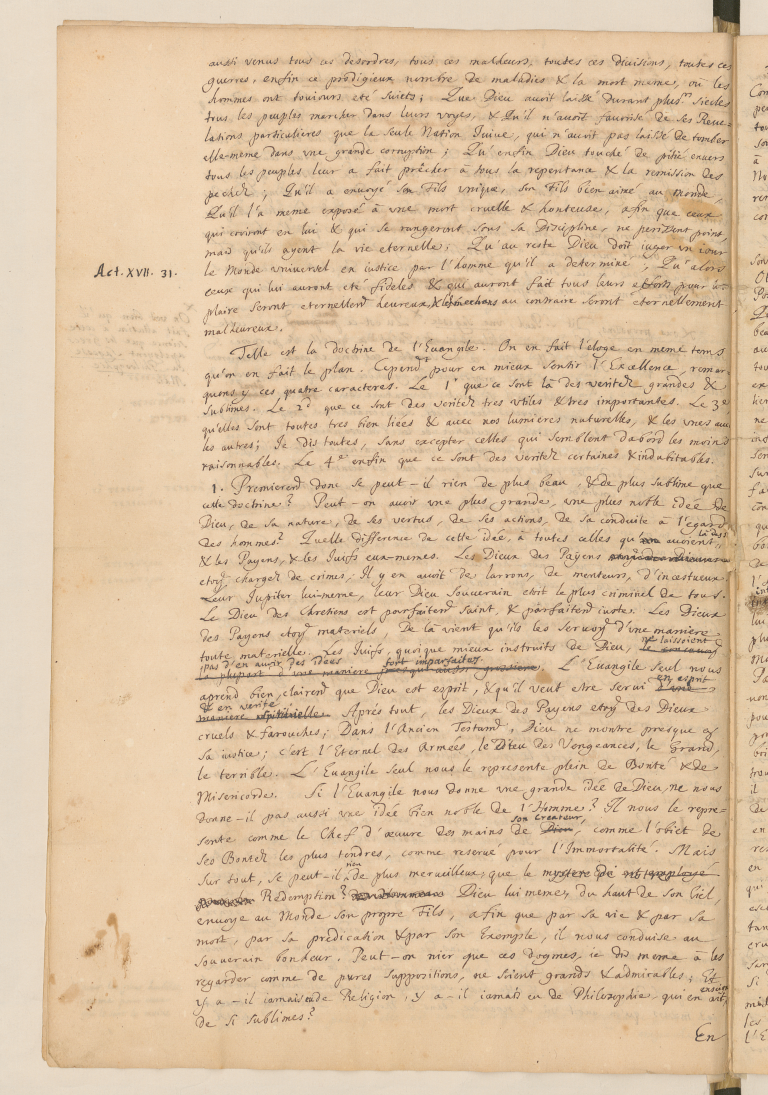 aussi venus tous ces desordres, tous ces malheurs, toutes ces divisions, toutes ces
guerres, enfin ce prodigieux nombre de maladies & la mort meme, où les
hommes ont toujours eté sujets; Que Dieu avoit laissé durant plus.rs Siecles
tous les peuples marcher dans leurs voyes, & Qu'il n'avoit favorisé de ses Reve-
lations particulieres que la seule Nation Juive, qui n'avoit pas laissé de tomber
elle-meme dans une grande corruption; Qu'enfin Dieu touché de pitié envers
tous les peuples leur a fait prêcher à tous la repentance & la remission des
pechez; Qu'il a envoyé son Fils unique, son Fils bien aimé au monde,
Qu'il l'a meme exposé à une mort cruelle & honteuse, afin que ceux
qui croiront en lui & qui se rangeront sous sa Discipline, ne perissent point,
mais qu'ils ayent la vie eternelle; Qu'au reste Dieu doit juger un jour
Act. XVII. 31.
le Monde universel en justice par l'homme qu'il a determiné; Qu'alors
ceux qui lui auront eté fideles & qui auront fait tous leurs efforts pour lui
plaire seront eternellemt heureux, & les mechans au contraire seront eternellement
malheureux.
Telle est la doctrine de l'Evangile. On en fait l'eloge en meme tems
qu'on en fait le plan. Cependt pour en mieux sentir l'Excellence, remar-
quons y ces quatre caracteres. Le 1r que ce sont là des veritez grandes &
sublimes. Le 2d que ce sont des veritez tres utiles & tres importantes. Le 3e
qu'elles sont toutes tres bien liées & avec nos lumieres naturelles, & les unes avec
les autres; Je dis toutes, sans excepter celles qui semblent d'abord les moins
raisonnables. Le 4e enfin que ce sont des veritez certaines & indubitables.
1. Premieremt donc se peut-il rien de plus beau, & de plus sublime que
cette doctrine? Peut-on avoir une plus grande, une plus noble idée de
Dieu, de sa nature, de ses vertus, de ses actions, de sa conduite à l'egard
des hommes? Quelle difference de cette idée, à toutes celles qu'en avoient
& les Payens, & les Juifs eux-memes. Les Dieux des Payens
etoyt chargez de crimes; Il y en avoit de larrons, de menteurs, d'incestueux.
Leur Jupiter lui-meme, leur Dieu souverain etoit le plus criminel de tous.
Le Dieu des Chretiens est parfaitemt saint, & parfaitemt juste. Les Dieux
des Payens etoyt materiels, De là vient qu'ils les servoyt d'une maniere
toute materielle. Les Juifs, quoique mieux instruits de Dieu, ne laissoient
pas d'en avoir des idées fort imparfaites
la plupart d'une maniere aussi grossiere. L'Evangile seul nous
aprend bien clairemt que Dieu est esprit, & qu'il veut etre servi en esprit
& en verité
maniere spirituelle. Après tout, les Dieux des Payens etoyt des Dieux
cruels & farouches; Dans l'Ancien Testamt, Dieu ne montre presque que
sa justice; c'est l'Eternel des Armées, le Dieu des Vengeances, le grand,
le terrible. L'Evangile seul nous le represente plein de Bonté & de
Misericorde. Si l'Evangile nous donne une grande idée de Dieu, ne nous
donne-il pas aussi une idée bien noble de l'Homme? Il nous le repre-
sente comme le Chef d'œuvre des mains de son Createur, comme l'objet de
ses Bontez les plus tendres, comme reservé pour l'Immortalité. Mais
sur tout, se peut-il rien de plus merveilleux que le mystere de
Redemption? Dieu lui meme, du haut de son Ciel,
envoye au Monde son propre Fils, afin que par sa vie & par sa
mort, par sa predication & par son Exemple, il nous conduise au
souverain bonheur. Peut-on nier que ces dogmes, je dis meme à les
regarder comme de pures suppositions, ne soient grands & admirables; Et
y a-il jamais eu de Religion, y a-il jamais eu de Philosophie, qui en ait
de si sublimes?
En